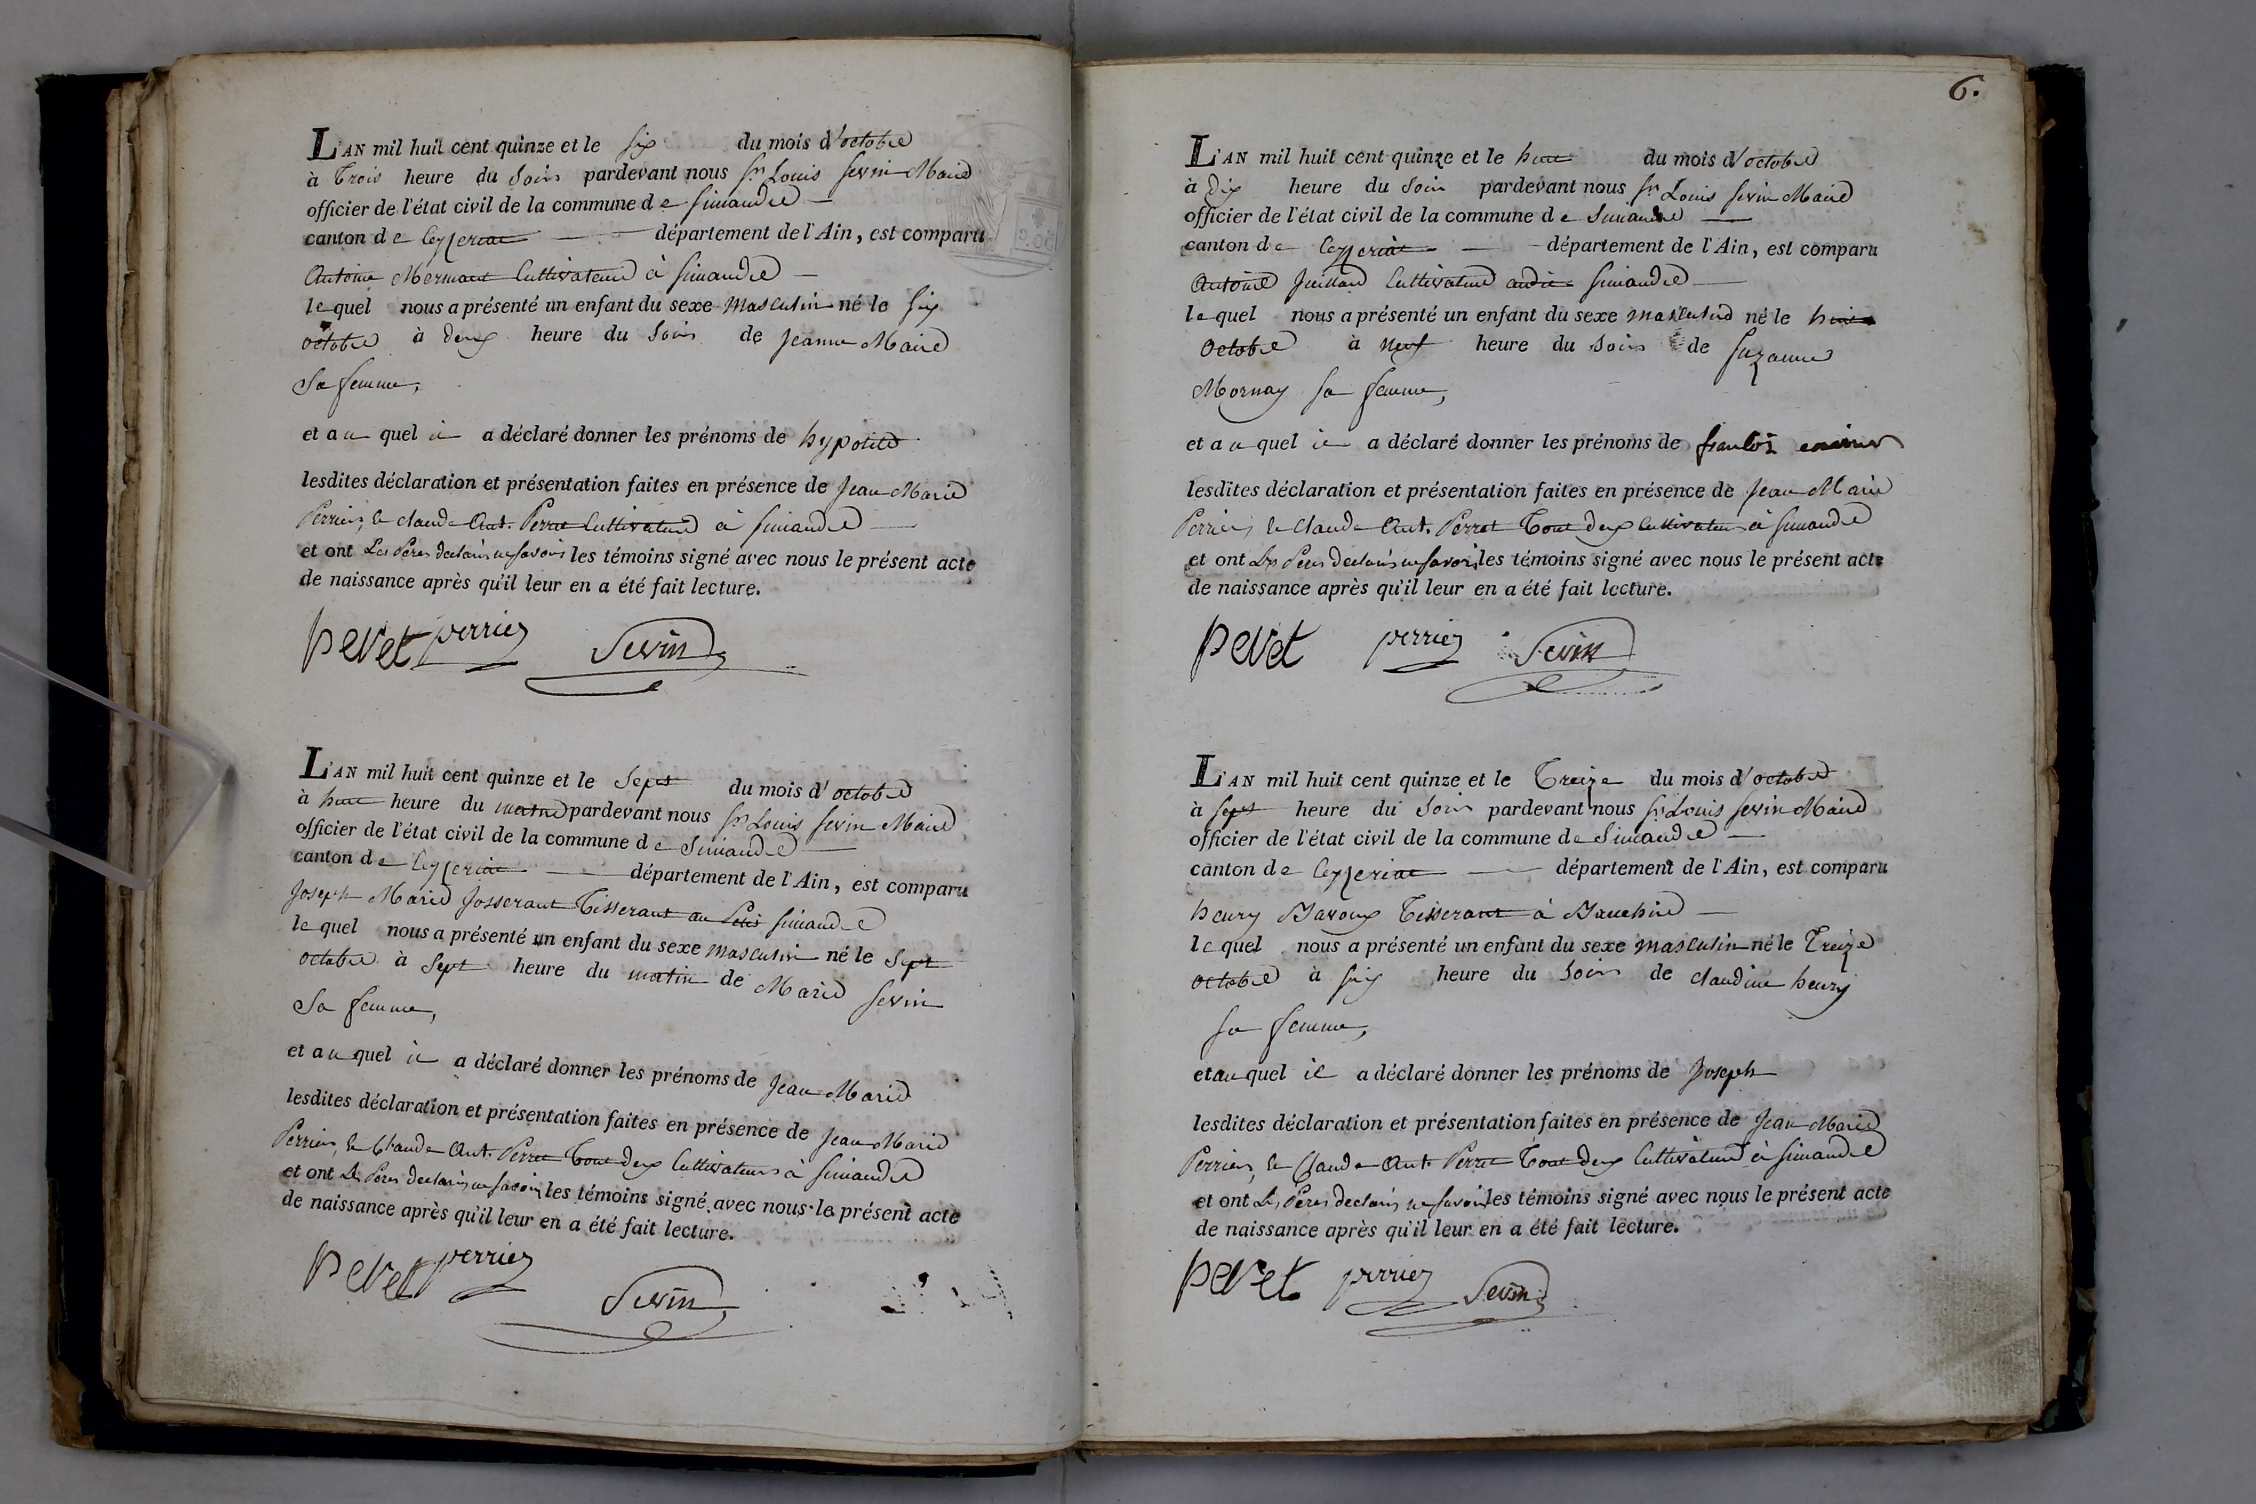 L'AN mil huit cent quinze et le six du mois d'octobre
à Trois heure du Soir pardevant nous Sr Louis Sevin Maire
officier de l'état civil de la commune de Simandre
canton de Ceyzeriat département de l'Ain, est comparu
Antoine Mermant Cultivateur à Simandre
lequel nous a présenté un enfant du sexe masculin né le six
octobre à deux heure du Soir de Jeanne Marie
Sa femme,
et au quel il a déclaré donner les prénoms de hypolite
lesdites déclaration et présentation faites en présence de Jean Marie
Perrier, & Claude Ant. Perret Cultivateur à Simandre
et ont Les Peres declaré ne savoir les témoins signé avec nous le présent acte
de naissance après qu'il leur en a été fait lecture.
peret perrier Sevin
L'AN mil huit cent quinze et le Sept du mois d'octobre
à huit heure du matin pardevant nous Sr Louis Sevin Maire
officier de l'état civil de la commune de Simandre
canton de Ceyzeriat département de l'Ain, est comparu
Joseph Marie Josserant Tisserant au Petit Simandre
lequel nous a présenté un enfant du sexe masculin né le Sept
octobre à Sept heure du matin de Marie Sevin
Sa femme,
et au quel il a déclaré donner les prénoms de Jean Marie
lesdites déclaration et présentation faites en présence de Jean Marie
Perrier, & Claude Ant. Perret Tout deux Cultivateurs à Simandre
et ont Les Peres declaré ne savoir les témoins signé avec nous le présent acte
de naissance après qu'il leur en a été fait lecture.
peret perrier
Sevin
6.
L'AN mil huit cent quinze et le huit du mois d'octobre
à dix heure du Soir pardevant nous Sr Louis Sevin Maire
officier de l'état civil de la commune de Simandre
canton de Ceyzeriat département de l'Ain, est comparu
Antoine Juillard Cultivateur audit Simandre
lequel nous a présenté un enfant du sexe masculin né le huit
Octobre à neuf heure du Soir de Suzanne
Mornay sa femme,
et au quel il a déclaré donner les prénoms de
lesdites déclaration et présentation faites en présence de Jean Marie
Perrier, & Claude Ant. Perret Tout deux Cultivateurs à Simandre
et ont Les Peres declaré ne savoir les témoins signé avec nous le présent acte
de naissance après qu'il leur en a été fait lecture.
peret perrier Sevin
L'AN mil huit cent quinze et le Treize du mois d'octobre
à Sept heure du Soir pardevant nous Sr Louis Sevin Maire
officier de l'état civil de la commune de Simandre
canton de Ceyzeriat département de l'Ain, est comparu
henry Bavoux Tisserant à
lequel nous a présenté un enfant du sexe masculin né le Treize
octobre à six heure du Soir de Claudine henry
sa femme,
et au quel il a déclaré donner les prénoms de Joseph
lesdites déclaration et présentation faites en présence de Jean Marie
Perrier, & Claude Ant. Perret Tout deux Cultivateur à Simandre
et ont Les Peres declaré ne savoir les témoins signé avec nous le présent acte
de naissance après qu'il leur en a été fait lecture.
peret perrier Sevin